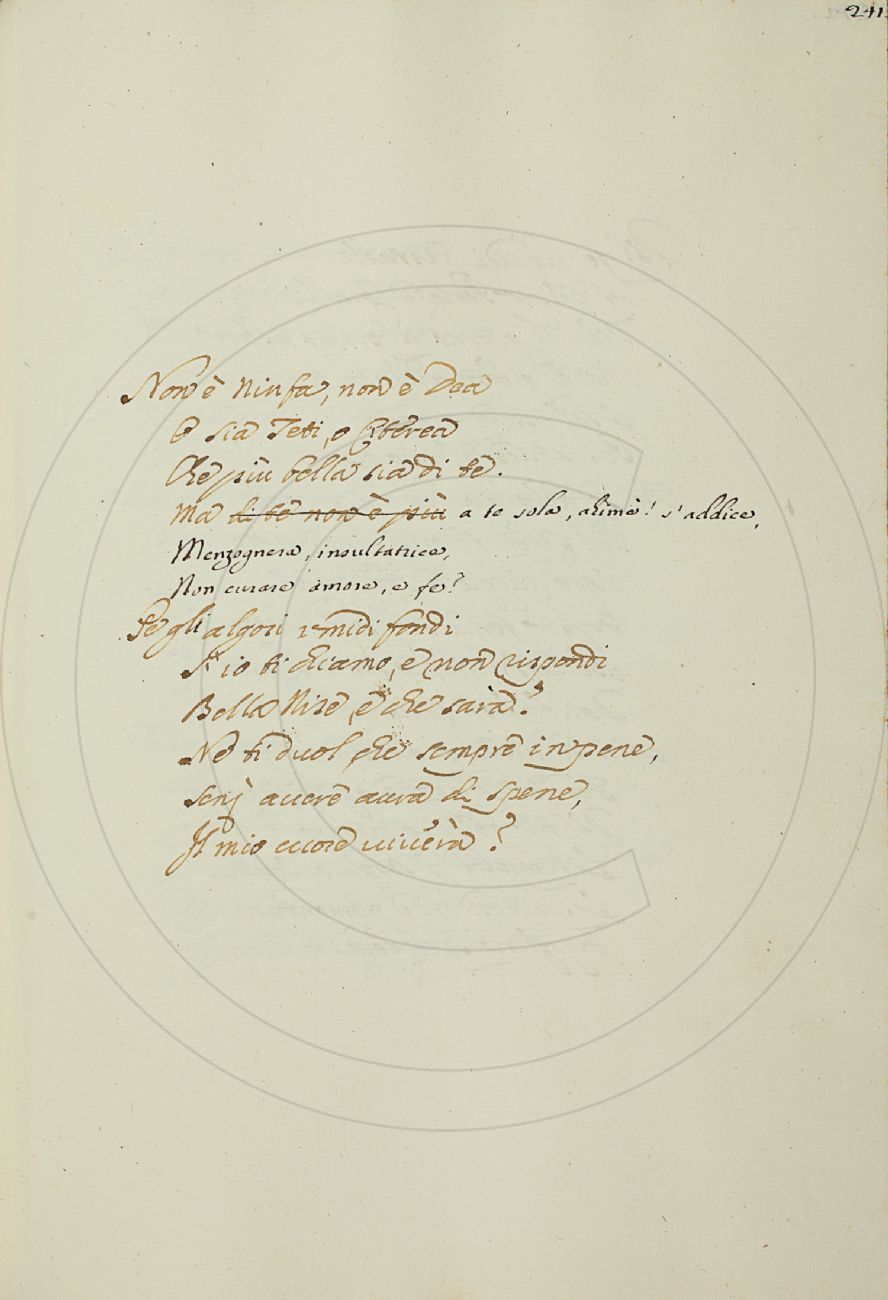 241
Non è Ninfa, non è Dea
O sia Teti, o Citerea
Che più bella sia di te.
Ma di te non è più a te sola, ahimè! s'addice,
Menzognera, insultatrice,
Non curare amore, e fe?
Se gli algosi umidi fondi
S' io ti chiamo, e non rispondi
Bella Nise, e che sarà?
Nè ti duol, che sempre in pene,
senz' avere aura di spene,
Il mio cuore viverà?